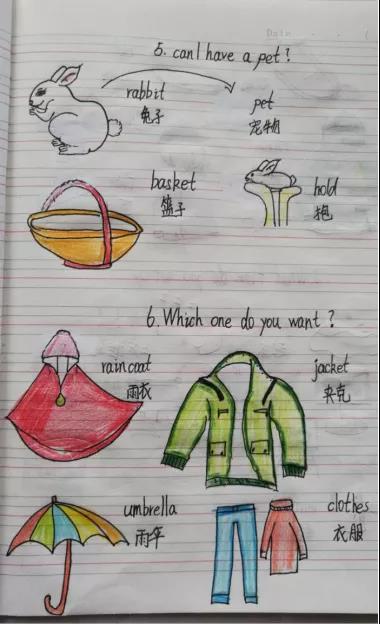 Date
5. can I have a pet?
rabbit
兔子
pet
宠物
basket
篮子
hold
抱
6. Which one do you want?
raincoat
雨衣
jacket
夹克
umbrella
雨伞
clothes
衣服